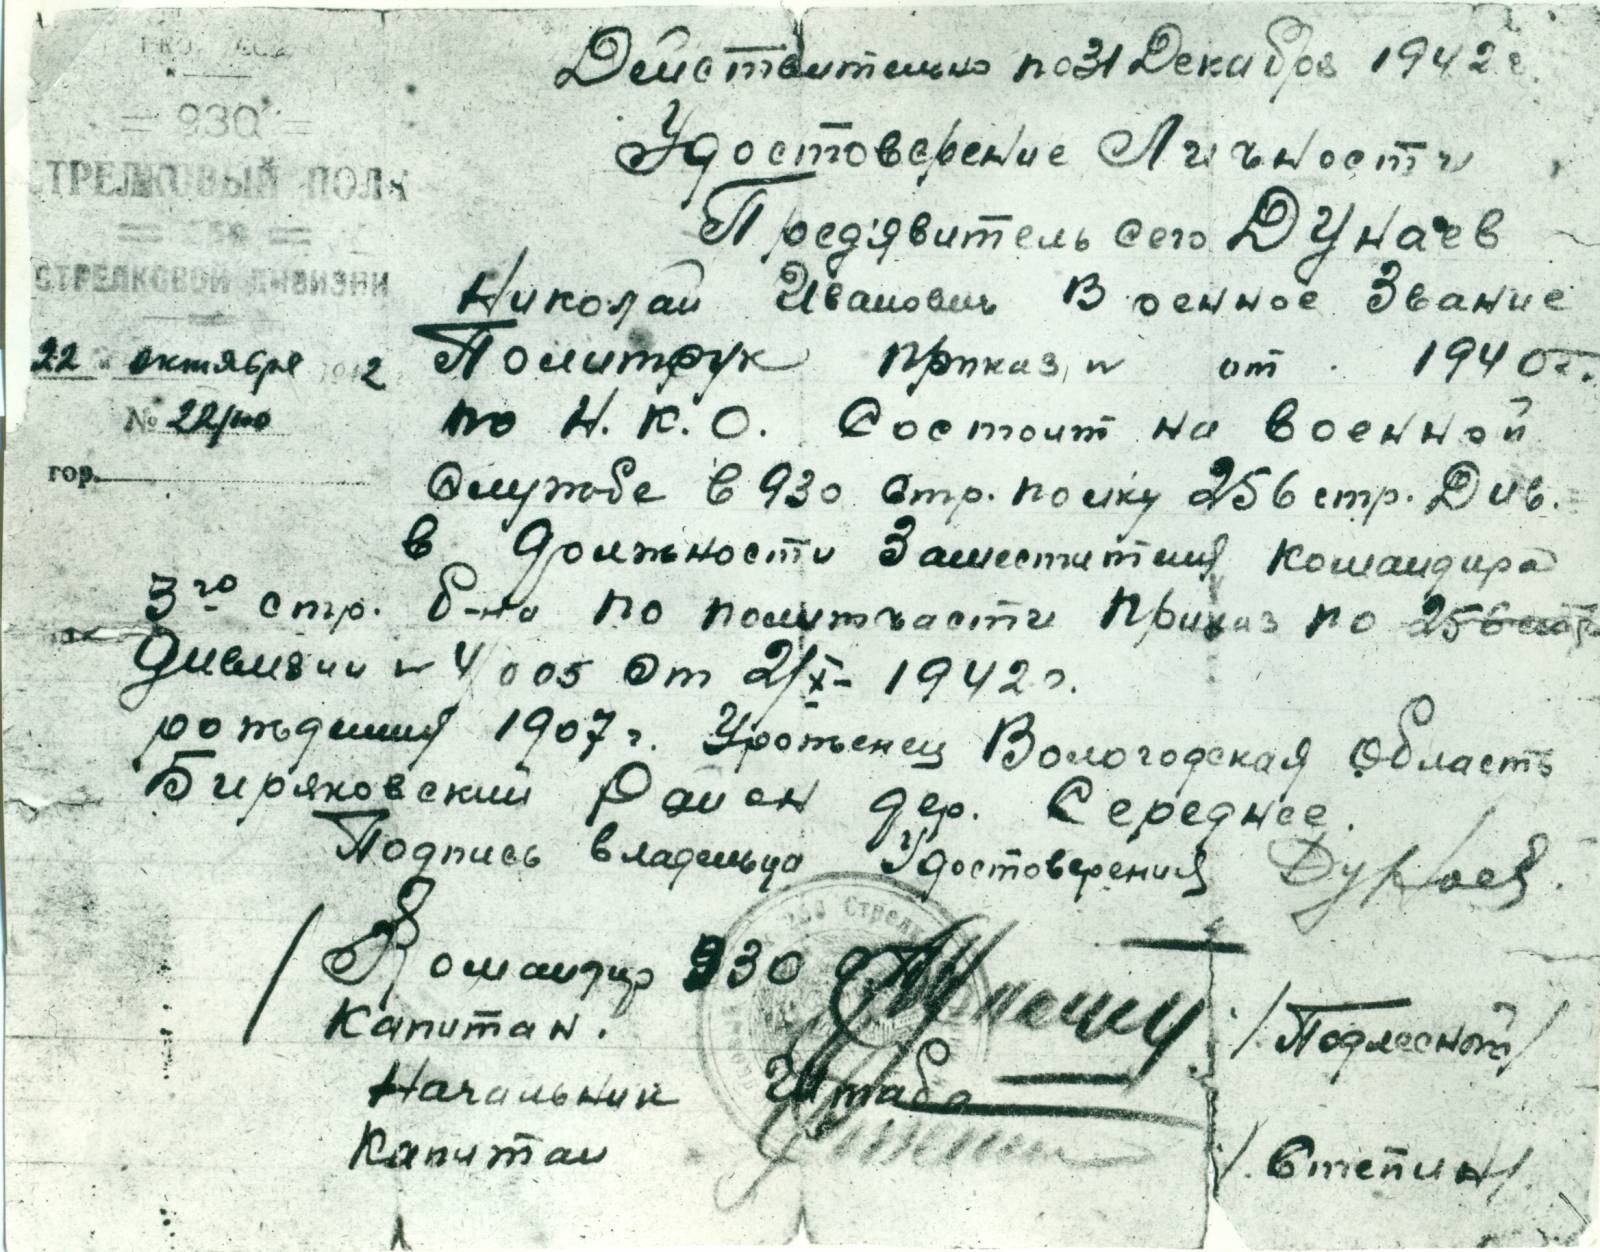 = 930 =
СТРЕЛКОВЫЙ ПОЛК
= 256 =
СТРЕЛКОВОЙ ДИВИЗИИ
22 октября 1942
№ 22/10
гор.
Действительно по 31 Декабря 1942 г.
Удостоверение Личности
Пред'явитель сего Дунаев
Николай Иванович Военное Звание
Политрук приказ № от 1940 г.
по Н.К.О. Состоит на военной
Службе в 930 стр. полку 256 стр. Див.
в должности Заместителя командира
3го стр. б-на по политчасти приказ по 256 стр
дивизии № 4/005 от 2/X- 1942 г.
рождения 1907 г. Уроженец Вологодская область
Биряковский Район дер. Середнее.
Подпись владельца Удостоверения Дунаев.
Командир 930
Капитан. /Подлесной/
Начальник Штаба
Капитан /Степин/.